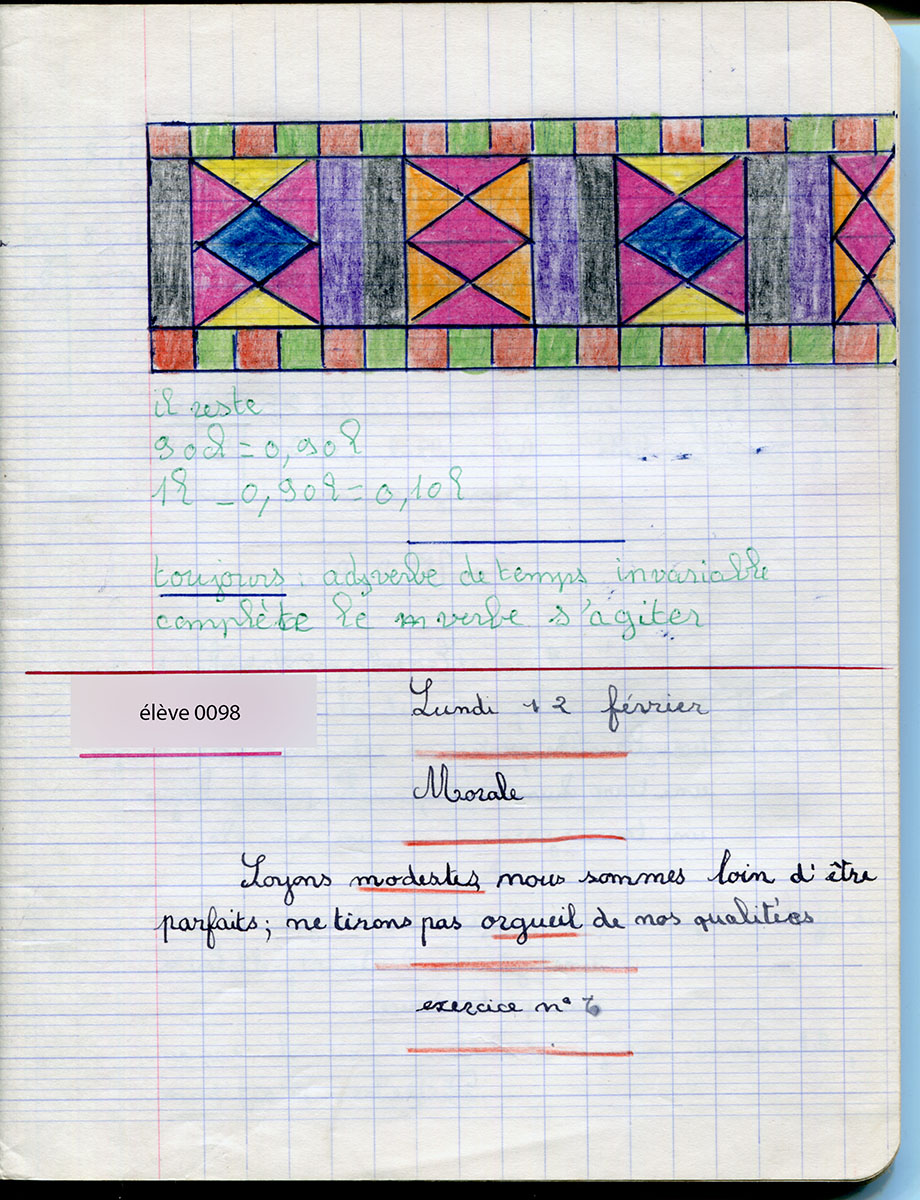 il reste
90cl = 0,90l
1l - 0,90l = 0,10l
toujours : adjverbe de temps invariable
complète le verbe s'agiter
élève 0098
Lundi 12 février
Morale
Soyons modestes nous sommes loin d'être
parfaits ; ne tirons pas orgueil de nos qualitées
exercice n° 6